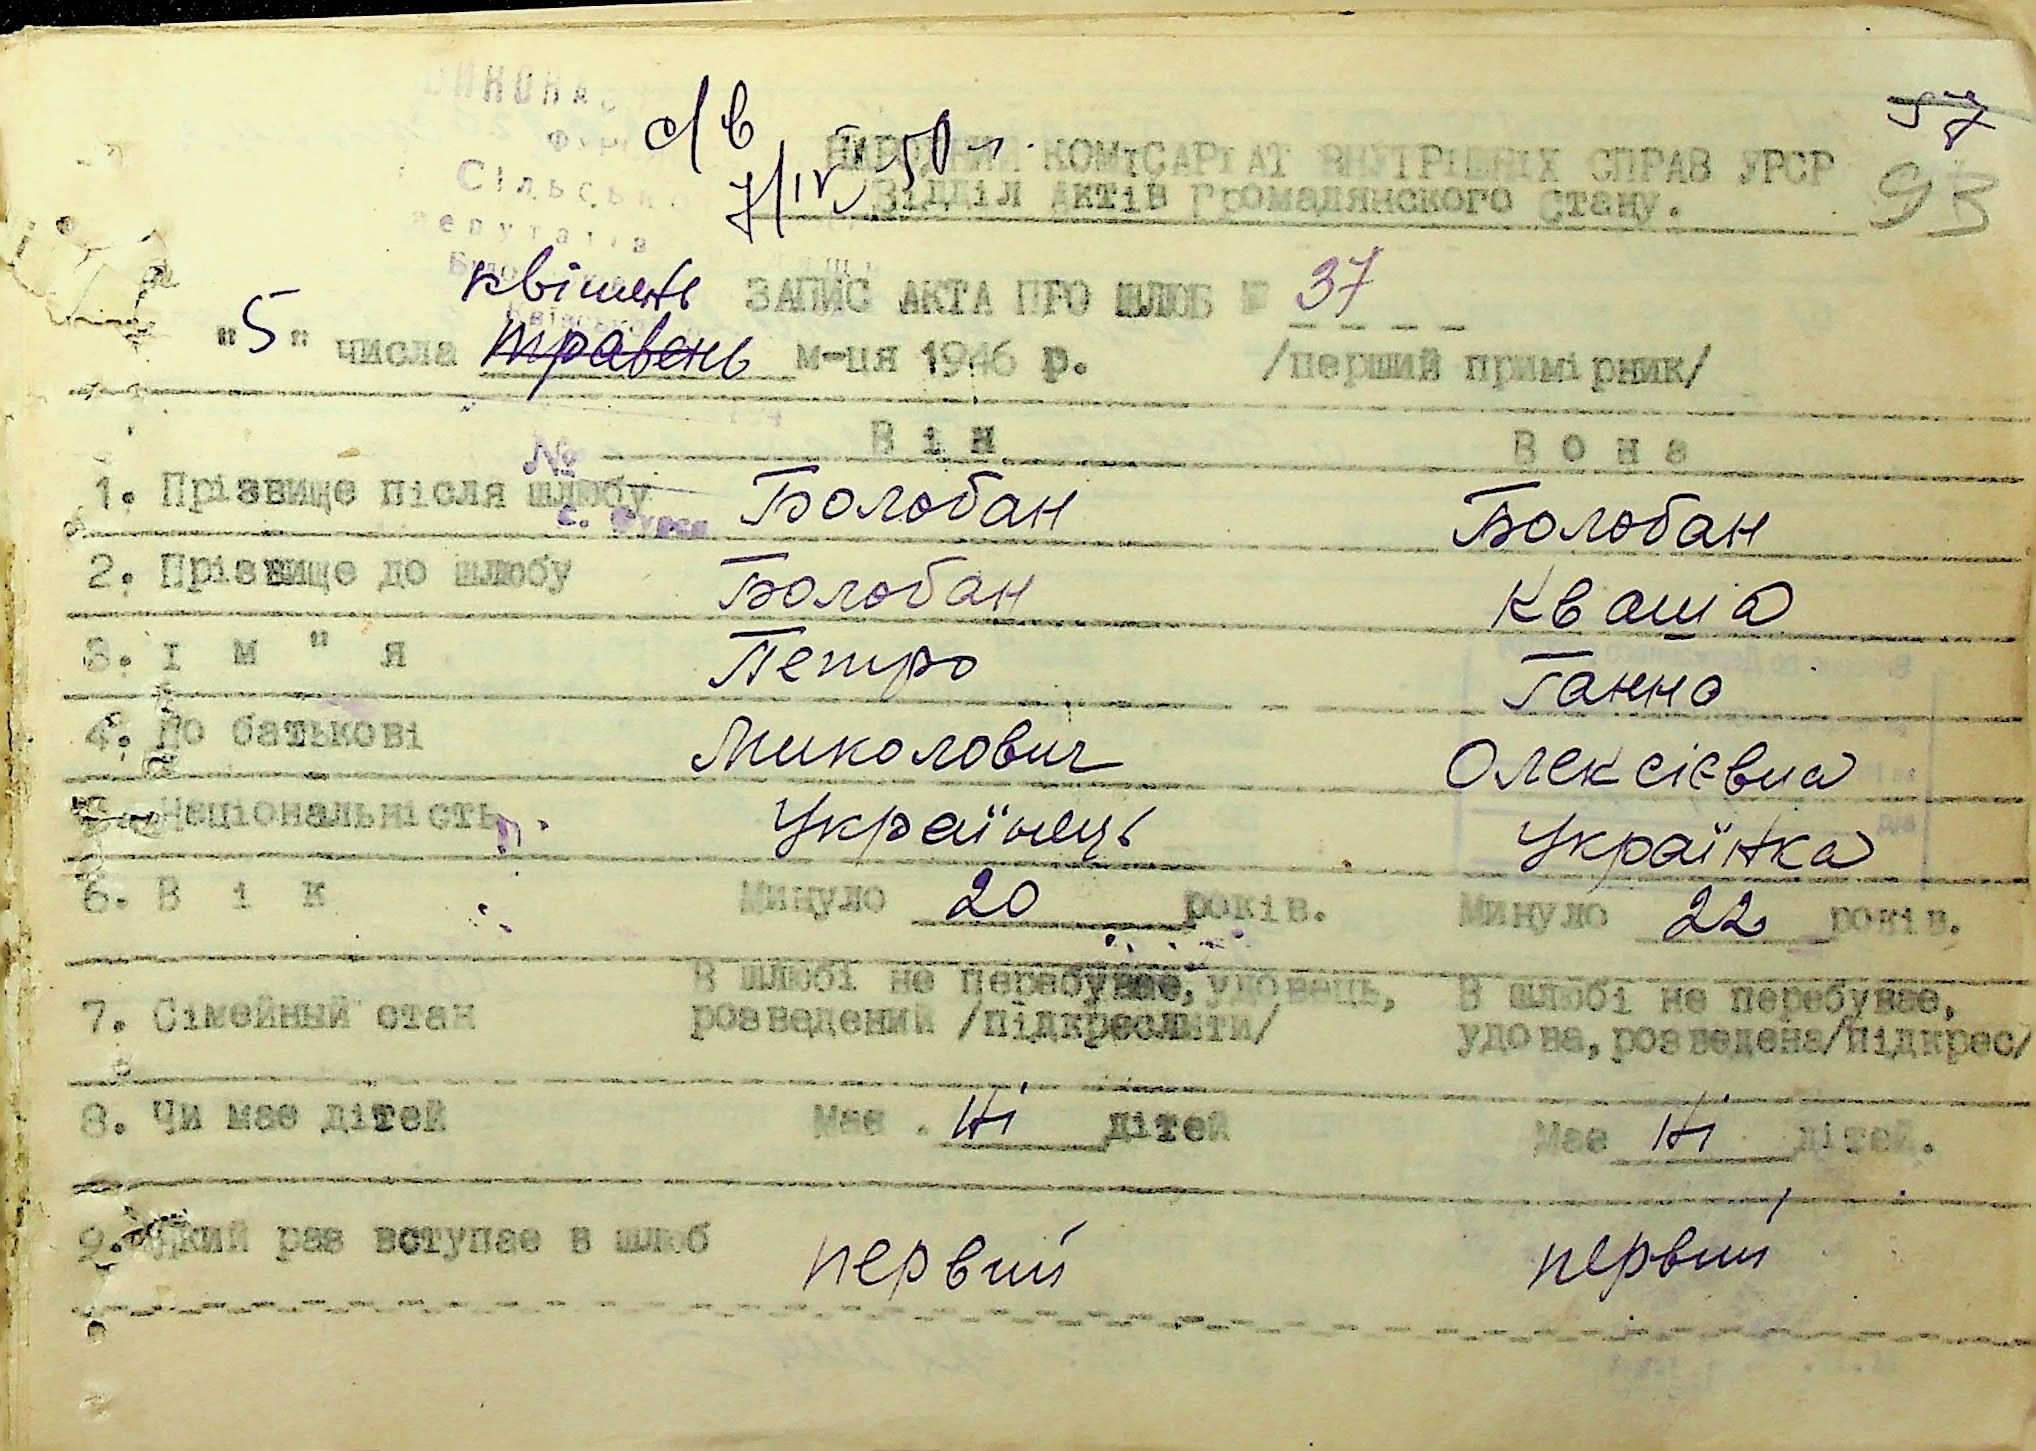 с/в
7/IV 50 г.
57
93
НАРОДНИЙ КОМІСАРІАТ ВНУТРІШНІХ СПРАВ УРСР
Відділ Актів Громадянского Стану.
квітень ЗАПИС АКТА ПРО ШЛЮБ № 37
"5" числа травень м-ця 1946 р. /перший примірник/
В і н В о н а
1. Прізвище після шлюбу Болобан Болобан
2. Прізвище до шлюбу Болобан Кваша
3. І м " я Петро Ганна
4. По батькові Миколович Олексієвна
5. Національність Українець Українка
6. В і к Минуло 20 років. Минуло 22 років.
7. Сімейный стан В шлюбі не перебуває, удовець, В шлюбі не перебуває,
розведений /підкреслити/ удова, розведена/підкрес/
8. Чи має дітей Має ні дітей Має ні дітей.
9. Який раз вступає в шлюб первий первий